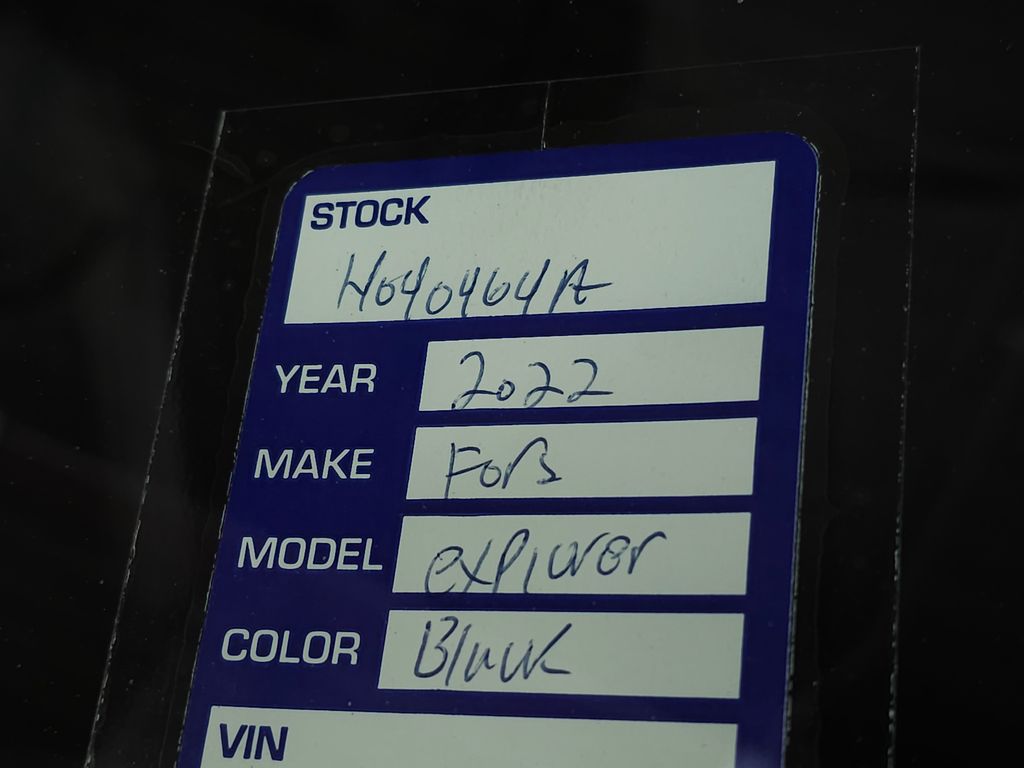 STOCK
H040464A
YEAR 2022
MAKE Ford
MODEL explorer
COLOR Black
VIN